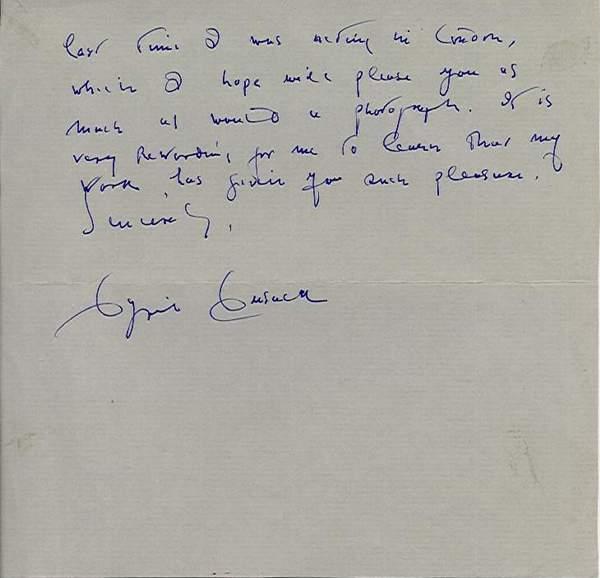 last time I was acting in London,
which I hope will please you as
much as would a photograph. It is
very rewarding for me to learn that my
work has given you such pleasure.
Sincerely,
Cyril Cusack